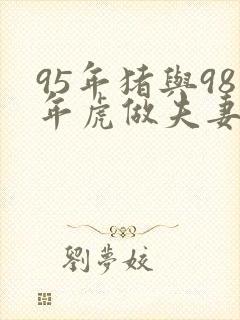 95年猪與98
年虎做夫妻
劉夢姣